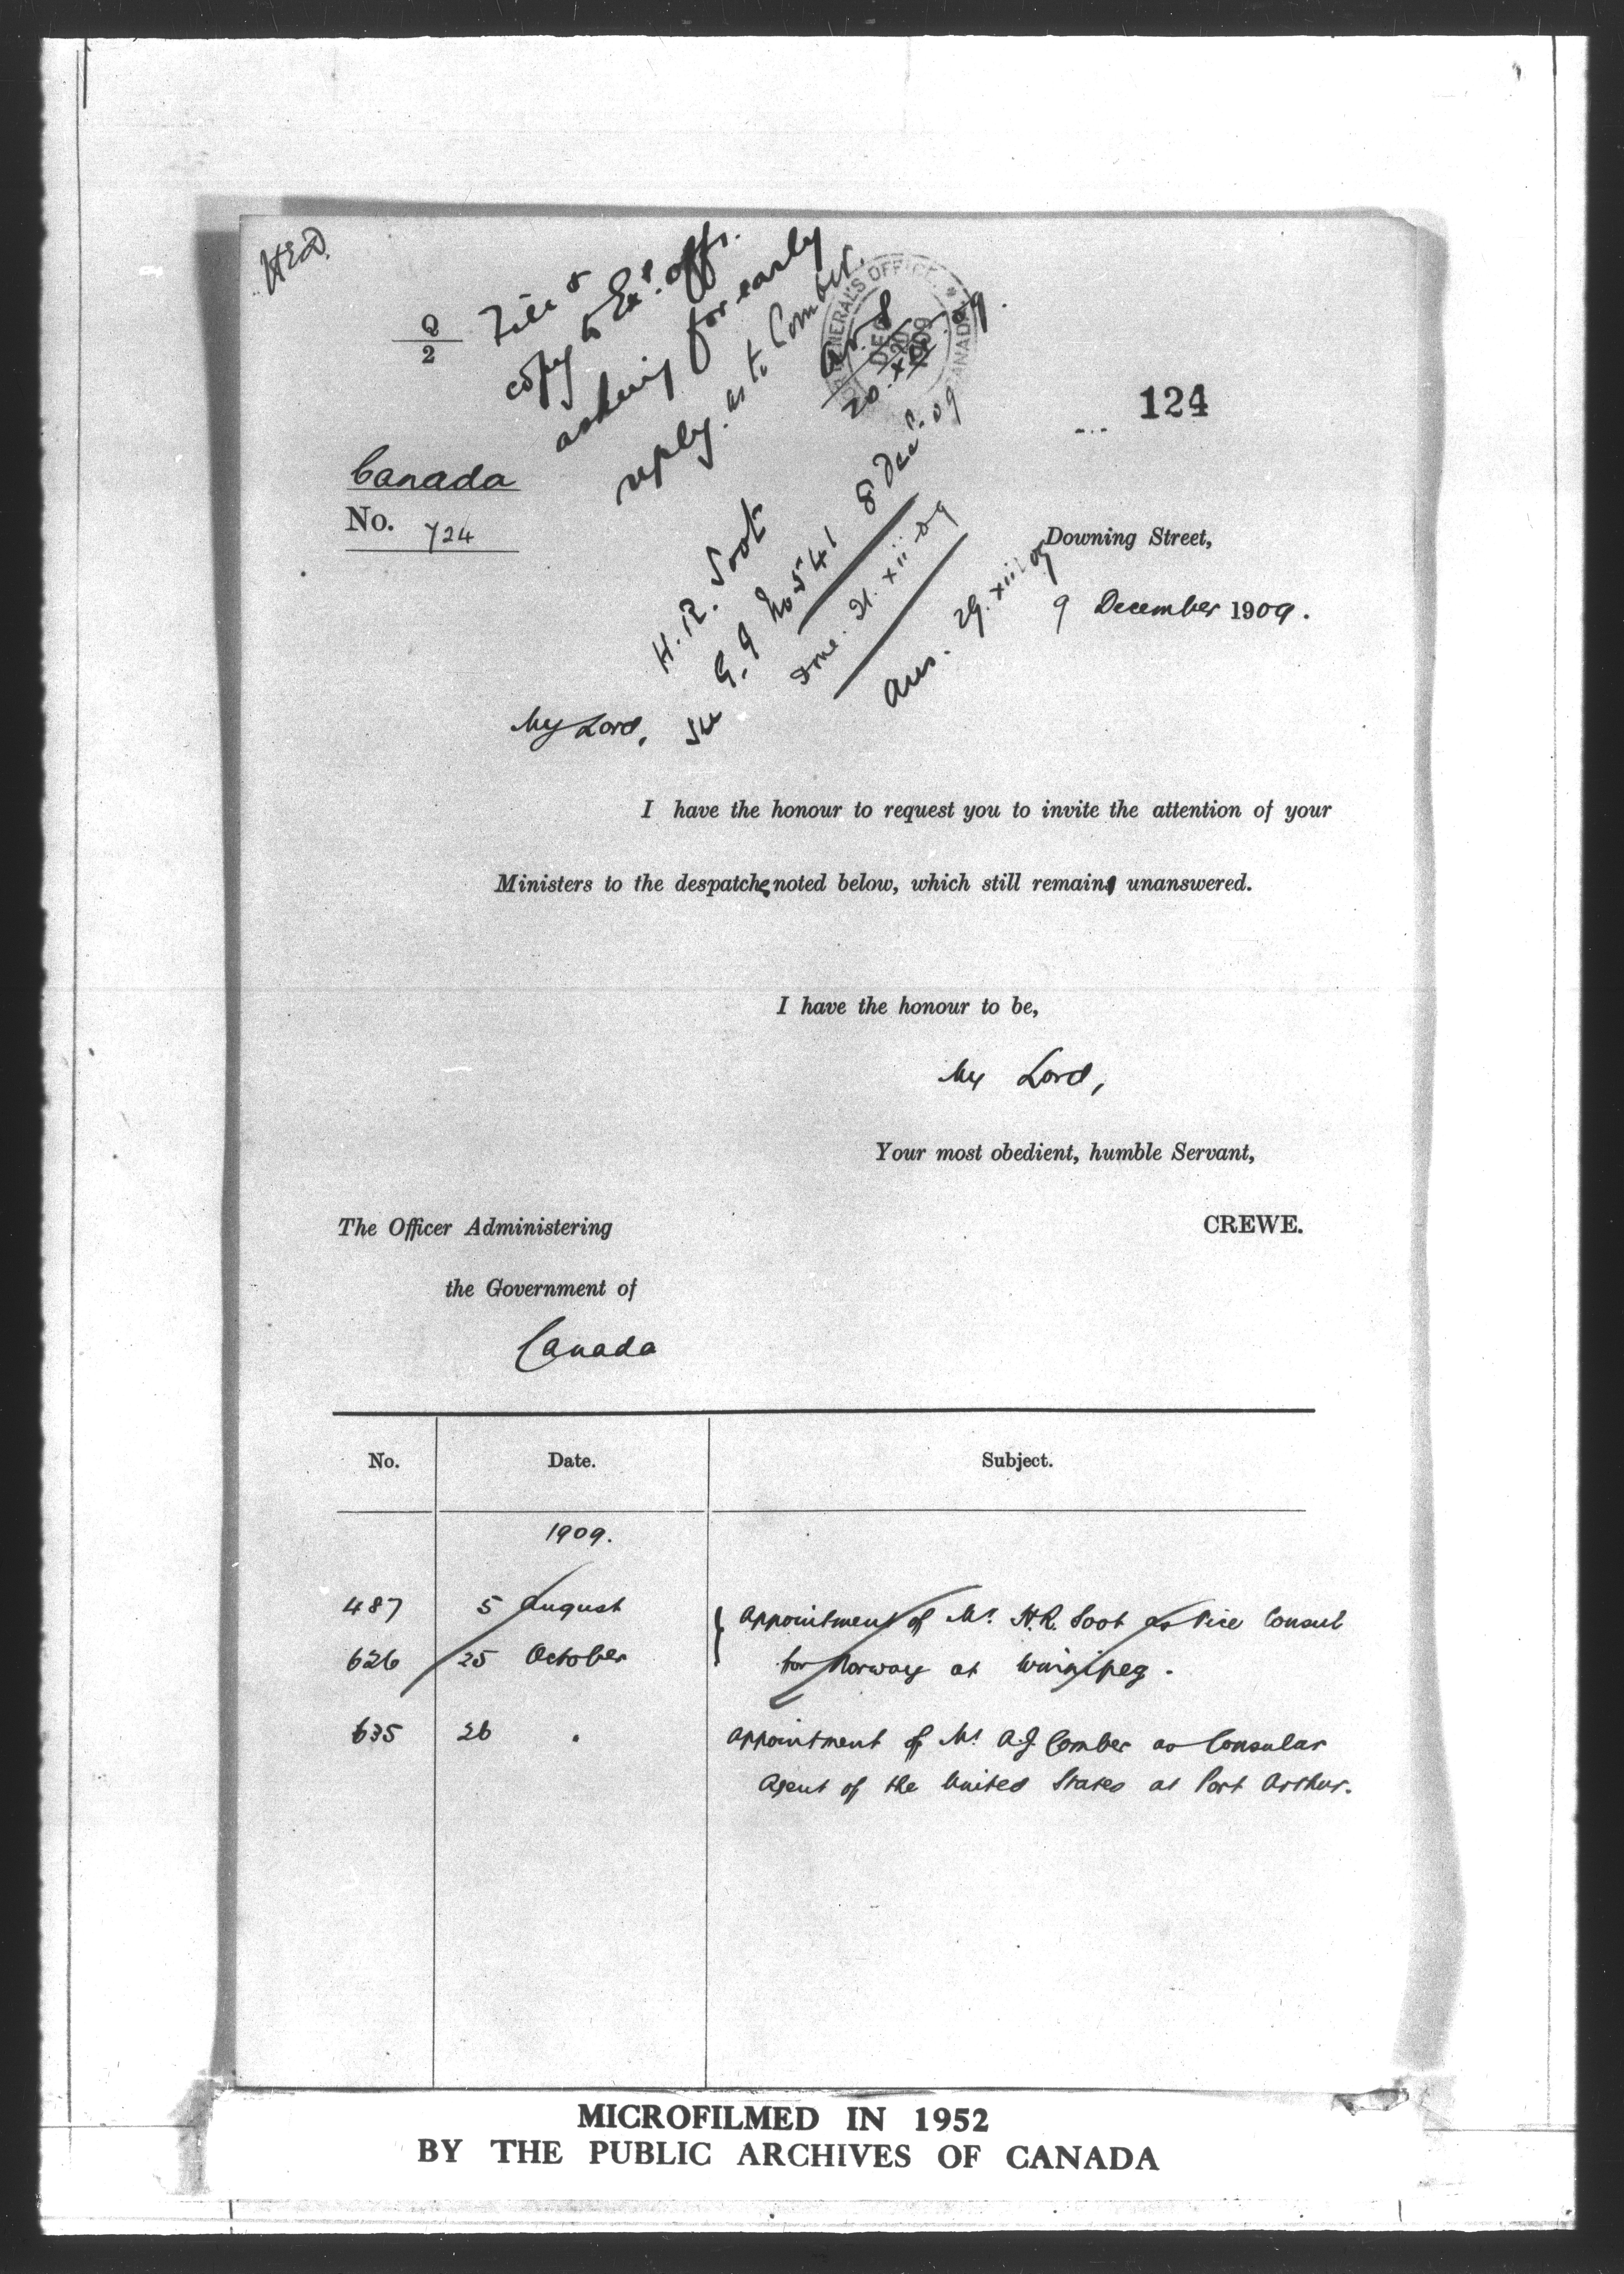 HED.
Q
2
File &
copy to Exl. offr.
asking for early
reply. as to Comber.
20.xii.09.
GENERAL'S OFFICE
DEC
20
1909
CANADA
124
Canada
No. 724
H. R. Soot
See G. G No 541 8 Decr. 09
Done. 21. xii. 09
Ans. 29. xii. 09
Downing Street,
9 December 1909.
My Lord,
I have the honour to request you to invite the attention of your
Ministers to the despatches noted below, which still remain unanswered.
I have the honour to be,
My Lord,
Your most obedient, humble Servant,
CREWE.
The Officer Administering
the Government of
Canada
No. Date. Subject.
1909.
487 5 August Appointment of Mr. H.R. Soot as Vice Consul
626 25 October for Norway at Winnipeg.
635 26 " Appointment of Mr A.J. Comber as Consular
Agent of the United States at Port Arthur.
MICROFILMED IN 1952
BY THE PUBLIC ARCHIVES OF CANADA